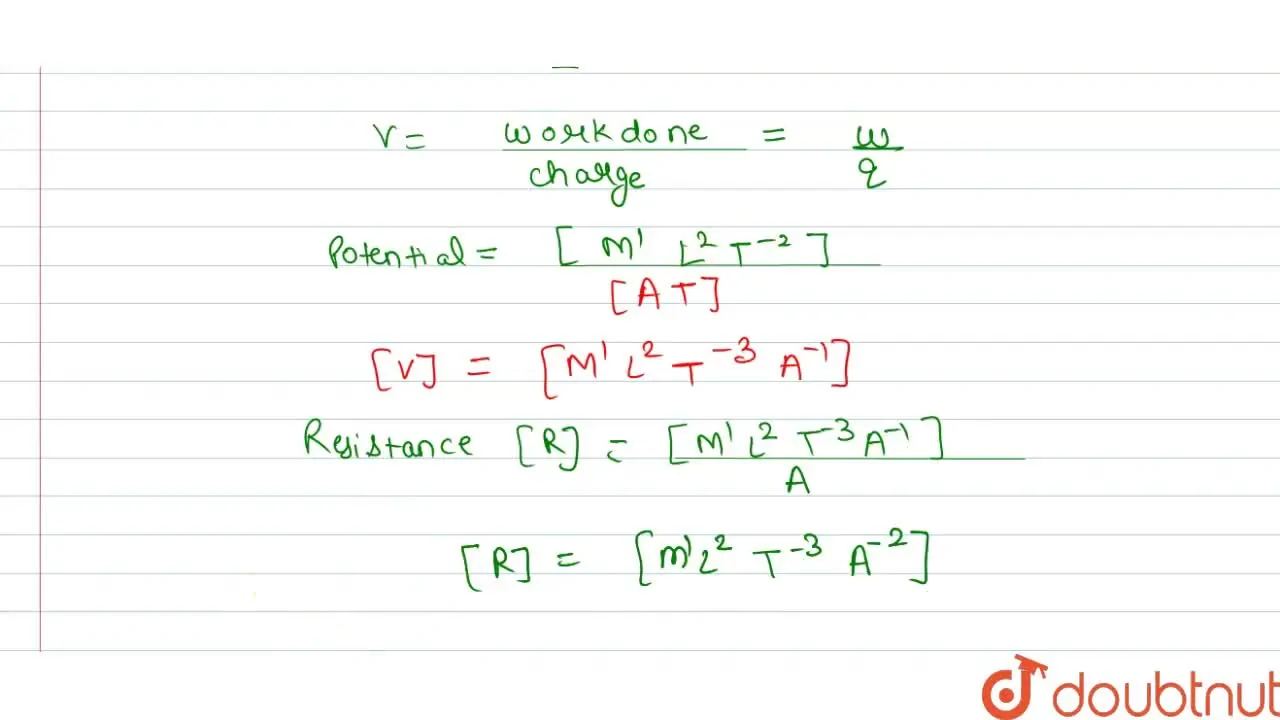 V = work done / charge = w / q
Potential = [ M¹ L² T⁻² ] / [ A T ]
[V] = [M¹ L² T⁻³ A⁻¹]
Resistance [R] = [M¹ L² T⁻³ A⁻¹] / A
[R] = [M¹ L² T⁻³ A⁻²]
doubtnut